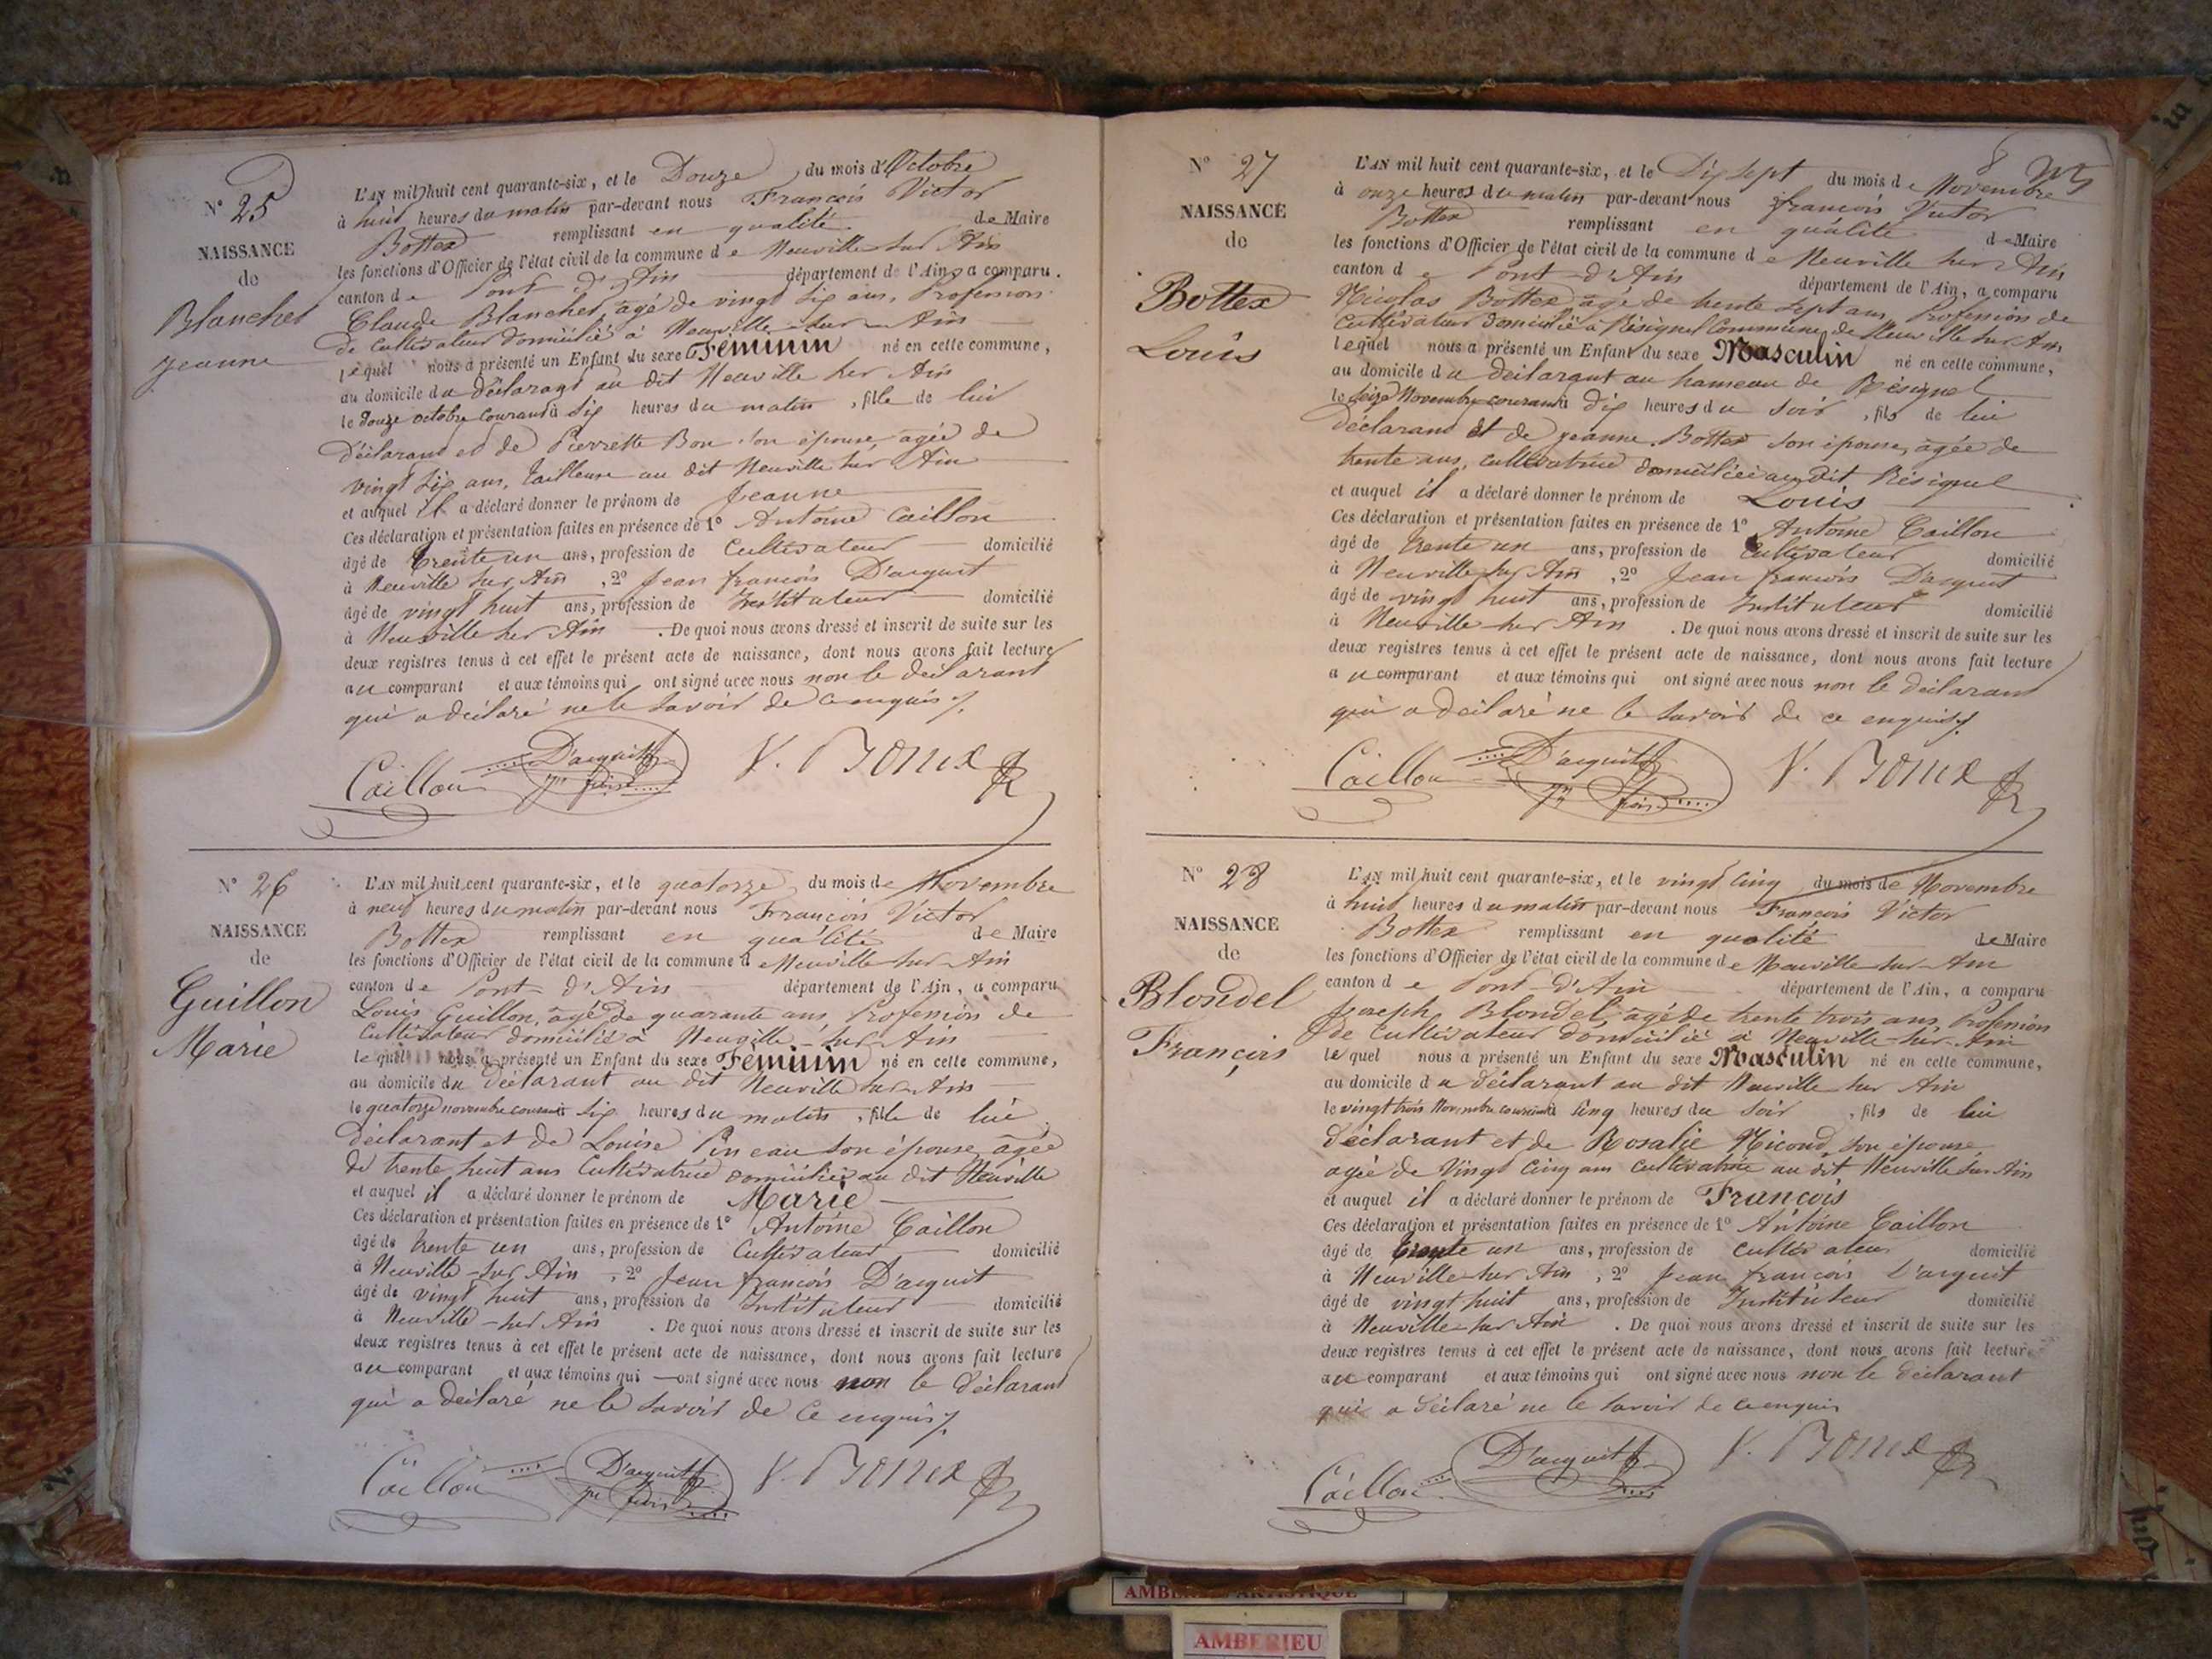 N° 25
NAISSANCE
de
Blanchet
Jeanne
L'AN mil huit cent quarante-six, et le Douze du mois d'Octobre
à huit heures du matin par-devant nous François Victor
Bottex remplissant en qualité de Maire
les fonctions d'Officier de l'état civil de la commune de Neuville sur Ain
canton de Pont d'Ain département de l'Ain, a comparu.
Claude Blanchet, agé de vingt six ans, Profession
de cultivateur domicilié à Neuville-sur-Ain
lequel nous a présenté un Enfant du sexe Féminin né en cette commune,
au domicile du déclarant au dit Neuville sur Ain
le douze octobre courant à six heures du matin, fille de lui
déclarant et de Pierrette Bon son épouse, agée de
vingt six ans, tailleuse au dit Neuville sur Ain
et auquel il a déclaré donner le prénom de Jeanne
Ces déclaration et présentation faites en présence de 1° Antoine Caillon
âgé de trente un ans, profession de Cultivateur domicilié
à Neuville sur Ain, 2° Jean françois D'arquit
âgé de vingt huit ans, profession de Instituteur domicilié
à Neuville sur Ain. De quoi nous avons dressé et inscrit de suite sur les
deux registres tenus à cet effet le présent acte de naissance, dont nous avons fait lecture
au comparant et aux témoins qui ont signé avec nous non le déclarant
qui a déclaré ne le savoir de ce enquis /.
Caillon D'arquit V. Bottex
N° 26
NAISSANCE
de
Guillon
Marie
L'AN mil huit cent quarante-six, et le quatorze du mois de Novembre
à neuf heures du matin par-devant nous François Victor
Bottex remplissant en qualité de Maire
les fonctions d'Officier de l'état civil de la commune de Neuville sur Ain
canton de Pont d'Ain département de l'Ain, a comparu
Louis Guillon, agé de quarante ans Profession de
Cultivateur domicilié à Neuville-sur-Ain
lequel nous a présenté un Enfant du sexe Féminin né en cette commune,
au domicile du déclarant au dit Neuville sur Ain
le quatorze novembre courant à six heures du matin, fille de lui
déclarant et de Louise Pineau son épouse, agée
de trente huit ans Cultivatrice domiciliée au dit Neuville
et auquel il a déclaré donner le prénom de Marie
Ces déclaration et présentation faites en présence de 1° Antoine Caillon
âgé de trente un ans, profession de Cultivateur domicilié
à Neuville-sur Ain, 2° Jean françois D'arquit
âgé de vingt huit ans, profession de Instituteur domicilié
à Neuville-sur Ain. De quoi nous avons dressé et inscrit de suite sur les
deux registres tenus à cet effet le présent acte de naissance, dont nous avons fait lecture
au comparant et aux témoins qui ont signé avec nous non le déclarant
qui a déclaré ne le savoir de ce enquis /.
Caillon D'arquit V. Bottex
8
N° 27
NAISSANCE
de
Bottex
Louis
L'AN mil huit cent quarante-six, et le Dix sept du mois de Novembre
à onze heures du matin par-devant nous françois Victor
Bottex remplissant en qualité de Maire
les fonctions d'Officier de l'état civil de la commune de Neuville sur Ain
canton de Pont-d'Ain département de l'Ain, a comparu
Nicolas Bottex agé de trente sept ans, Profession de
Cultivateur domicilié à Résignel Commune de Neuville sur Ain
lequel nous a présenté un Enfant du sexe Masculin né en cette commune,
au domicile du déclarant au hameau de Résignel
le seize Novembre courant à dix heures du soir, fils de lui
déclarant et de Jeanne Bottex son épouse, agée de
trente ans, cultivatrice domiciliée au dit Résignel
et auquel il a déclaré donner le prénom de Louis
Ces déclaration et présentation faites en présence de 1° Antoine Caillon
âgé de trente un ans, profession de Cultivateur domicilié
à Neuville sur Ain, 2° Jean françois D'arquit
âgé de vingt huit ans, profession de Instituteur domicilié
à Neuville sur Ain. De quoi nous avons dressé et inscrit de suite sur les
deux registres tenus à cet effet le présent acte de naissance, dont nous avons fait lecture
au comparant et aux témoins qui ont signé avec nous non le déclarant
qui a déclaré ne le savoir de ce enquis /.
Caillon D'arquit V. Bottex
N° 28
NAISSANCE
de
Blondel
François
L'AN mil huit cent quarante-six, et le vingt cinq du mois de Novembre
à huit heures du matin par-devant nous François Victor
Bottex remplissant en qualité de Maire
les fonctions d'Officier de l'état civil de la commune de Neuville sur Ain
canton de Pont-d'Ain département de l'Ain, a comparu
Joseph Blondel agé de trente trois ans, Profession
de Cultivateur domicilié à Neuville-sur-Ain
lequel nous a présenté un Enfant du sexe Masculin né en cette commune,
au domicile du déclarant au dit Neuville sur Ain
le vingt trois Novembre courant à cinq heures du soir, fils de lui
déclarant et de Rosalie Nicoud son épouse
agée de vingt cinq ans cultivatrice au dit Neuville sur Ain
et auquel il a déclaré donner le prénom de François
Ces déclaration et présentation faites en présence de 1° Antoine Caillon
âgé de trente un ans, profession de cultivateur domicilié
à Neuville sur Ain, 2° Jean françois D'arquit
âgé de vingt huit ans, profession de Instituteur domicilié
à Neuville sur Ain. De quoi nous avons dressé et inscrit de suite sur les
deux registres tenus à cet effet le présent acte de naissance, dont nous avons fait lecture
au comparant et aux témoins qui ont signé avec nous non le déclarant
qui a déclaré ne le savoir de ce enquis
Caillon D'arquit V. Bottex
AMBERIEU